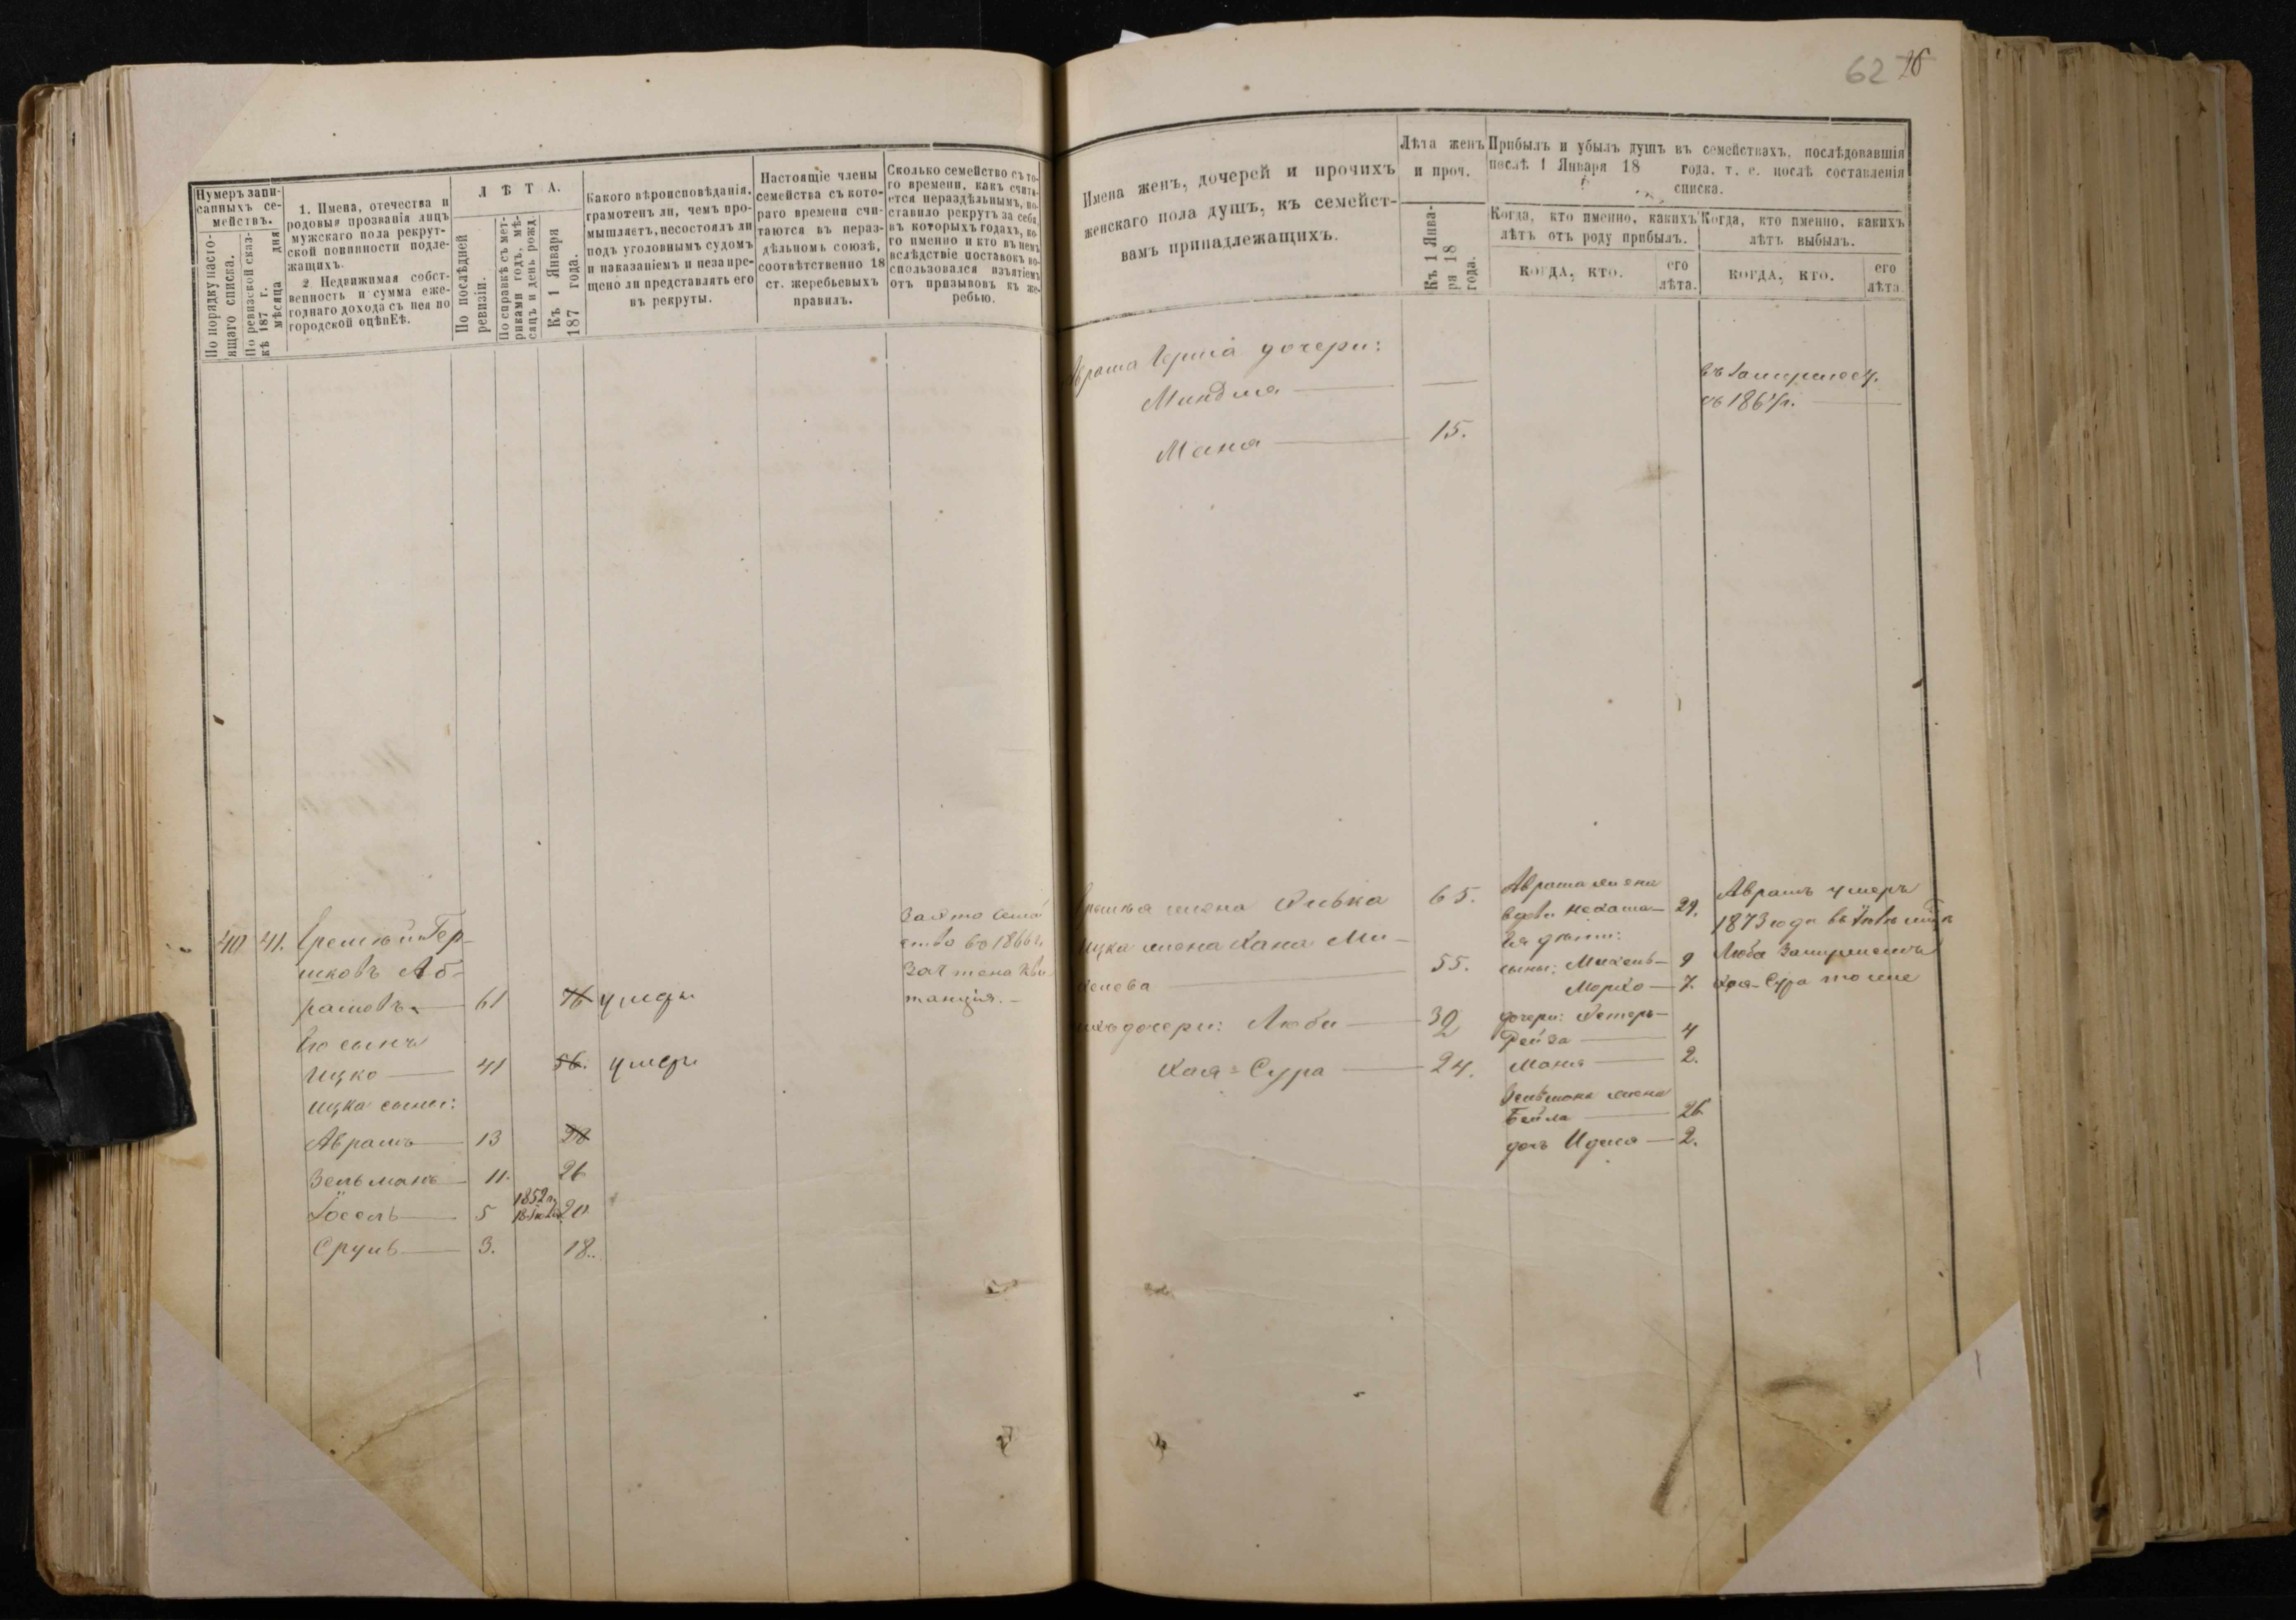 Нумеръ запи-
санныхъ се-
мействъ.
По порядку насто-
ящаго списка.
По ревизской сказ-
кѣ 187 г.
мѣсяца дня
1. Имена, отечества и
родовыя прозванія лицъ
мужскаго пола рекрут-
ской повинности подле-
жащихъ.
2. Недвижимая собст-
венность и сумма еже-
годнаго дохода съ нея по
городской оцѣнЕѣ.
ЛѢТА.
По послѣдней
ревизіи.
По справкѣ съ мет-
риками годъ, мѣ-
сяцъ и день рожд.
Къ 1 Января
187 года.
Какого вѣроисповѣданія.
грамотенъ ли, чемъ про-
мышляетъ, несостоялъ ли
подъ уголовнымъ судомъ
и наказаніемъ и незапре-
щено ли представлять его
въ рекруты.
Настоящіе члены
семейства съ кото-
раго времени счи-
таются въ нераз-
дѣльномъ союзѣ,
соотвѣтственно 18
ст. жеребьевыхъ
правилъ.
Сколько семейство съ то-
го времени, какъ счита-
ется нераздѣльнымъ, по-
ставило рекрутъ за себя,
въ которыхъ годахъ, ко-
го именно и кто въ немъ
вслѣдствіе поставокъ во-
спользовался изъятіемъ
отъ призывовъ къ же-
ребью.
40 41.
Гершковъ Аб-
рамовъ — 61 76 умеръ
Его сынъ
Ицко — 41 56. умеръ
Ицка сыны:
Аврамъ — 13 28
Зельманъ — 11. 26
1852 г.
Іосель — 5 20
Сруль — 3. 18.
во 1866 г.
зачтена кви
танція. —
62 26
Имена женъ, дочерей и прочихъ
женскаго пола душъ, къ семейст-
вамъ принадлежащихъ.
Лѣта женъ
и проч.
Къ 1 Янва-
ря 18
года.
Прибылъ и убылъ душъ въ семействахъ, послѣдовавшія
послѣ 1 Января 18 года, т. е. послѣ составленія
списка.
Когда, кто именно, какихъ
лѣтъ отъ роду прибылъ.
КОГДА, КТО.
его
лѣта.
Когда, кто именно, какихъ
лѣтъ выбылъ.
КОГДА, КТО.
его
лѣта.
Аврама дочери:
Миндля —
въ 1864 г.
Мана — 15.
жена Ривка 65.
Ицка жена Хана Ми-
хелева — 55.
дочери: Люба — 32
Хая-Сура — 24.
Аврама жена
вдова Нехама — 29.
Ея дѣти:
сыны: Михель — 9
Морко — 7.
дочери: Эстеръ-
Рейза — 4
Маня — 2.
Зельмана жена
Бейла — 26
дочь Идля — 2.
Аврамъ умеръ
1873 года
Люба Замужемъ
Хая-Сура тоже